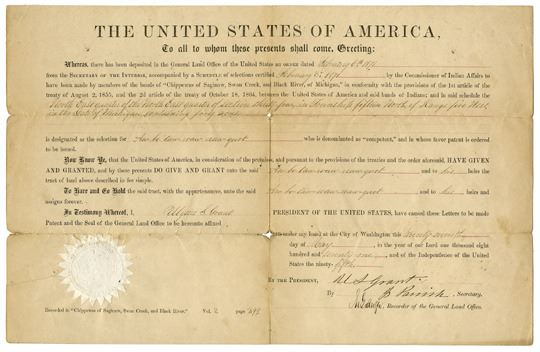 THE UNITED STATES OF AMERICA,
To all to whom these presents shall come, Greeting:
Whereas, there has been deposited in the General Land Office of the United States an order dated February 6th 1871
from the SECRETARY OF THE INTERIOR, accompanied by a SCHEDULE of selections certified February 6th 1871, by the Commissioner of Indian Affairs to
have been made by members of the bands of "Chippewas of Saginaw, Swan Creek, and Black River, of Michigan," in conformity with the provisions of the 1st article of the
treaty of August 2, 1855, and the 2d article of the treaty of October 18, 1864, between the United States of America and said bands of Indians; and in said schedule the
North East quarter of the North East quarter of section thirty four, in Township fifteen North of Range five West
in the State of Michigan containing forty acres
is designated as the selection for who is denominated as "competent," and in whose favor patent is ordered
to be issued.
Now Know Ye, that the United States of America, in consideration of the premises, and pursuant to the provisions of the treaties and the order aforesaid, HAVE GIVEN
AND GRANTED, and by these presents DO GIVE AND GRANT unto the said and to his heirs the
tract of land above described in fee simple.
To Have and To Hold the said tract, with the appurtenances, unto the said and to his heirs and
assigns forever.
In Testimony Whereof, I, Ulysses S. Grant PRESIDENT OF THE UNITED STATES, have caused these Letters to be made
Patent and the Seal of the General Land Office to be hereunto affixed
under my hand at the City of Washington this
day of May, in the year of our Lord one thousand eight
hundred and seventy one, and of the Independence of the United
States the ninety-fifth.
BY THE PRESIDENT, U S Grant
By Parrish, Secretary.
Recorder of the General Land Office.
Recorded in "Chippewas of Saginaw, Swan Creek, and Black River." Vol. 2 page